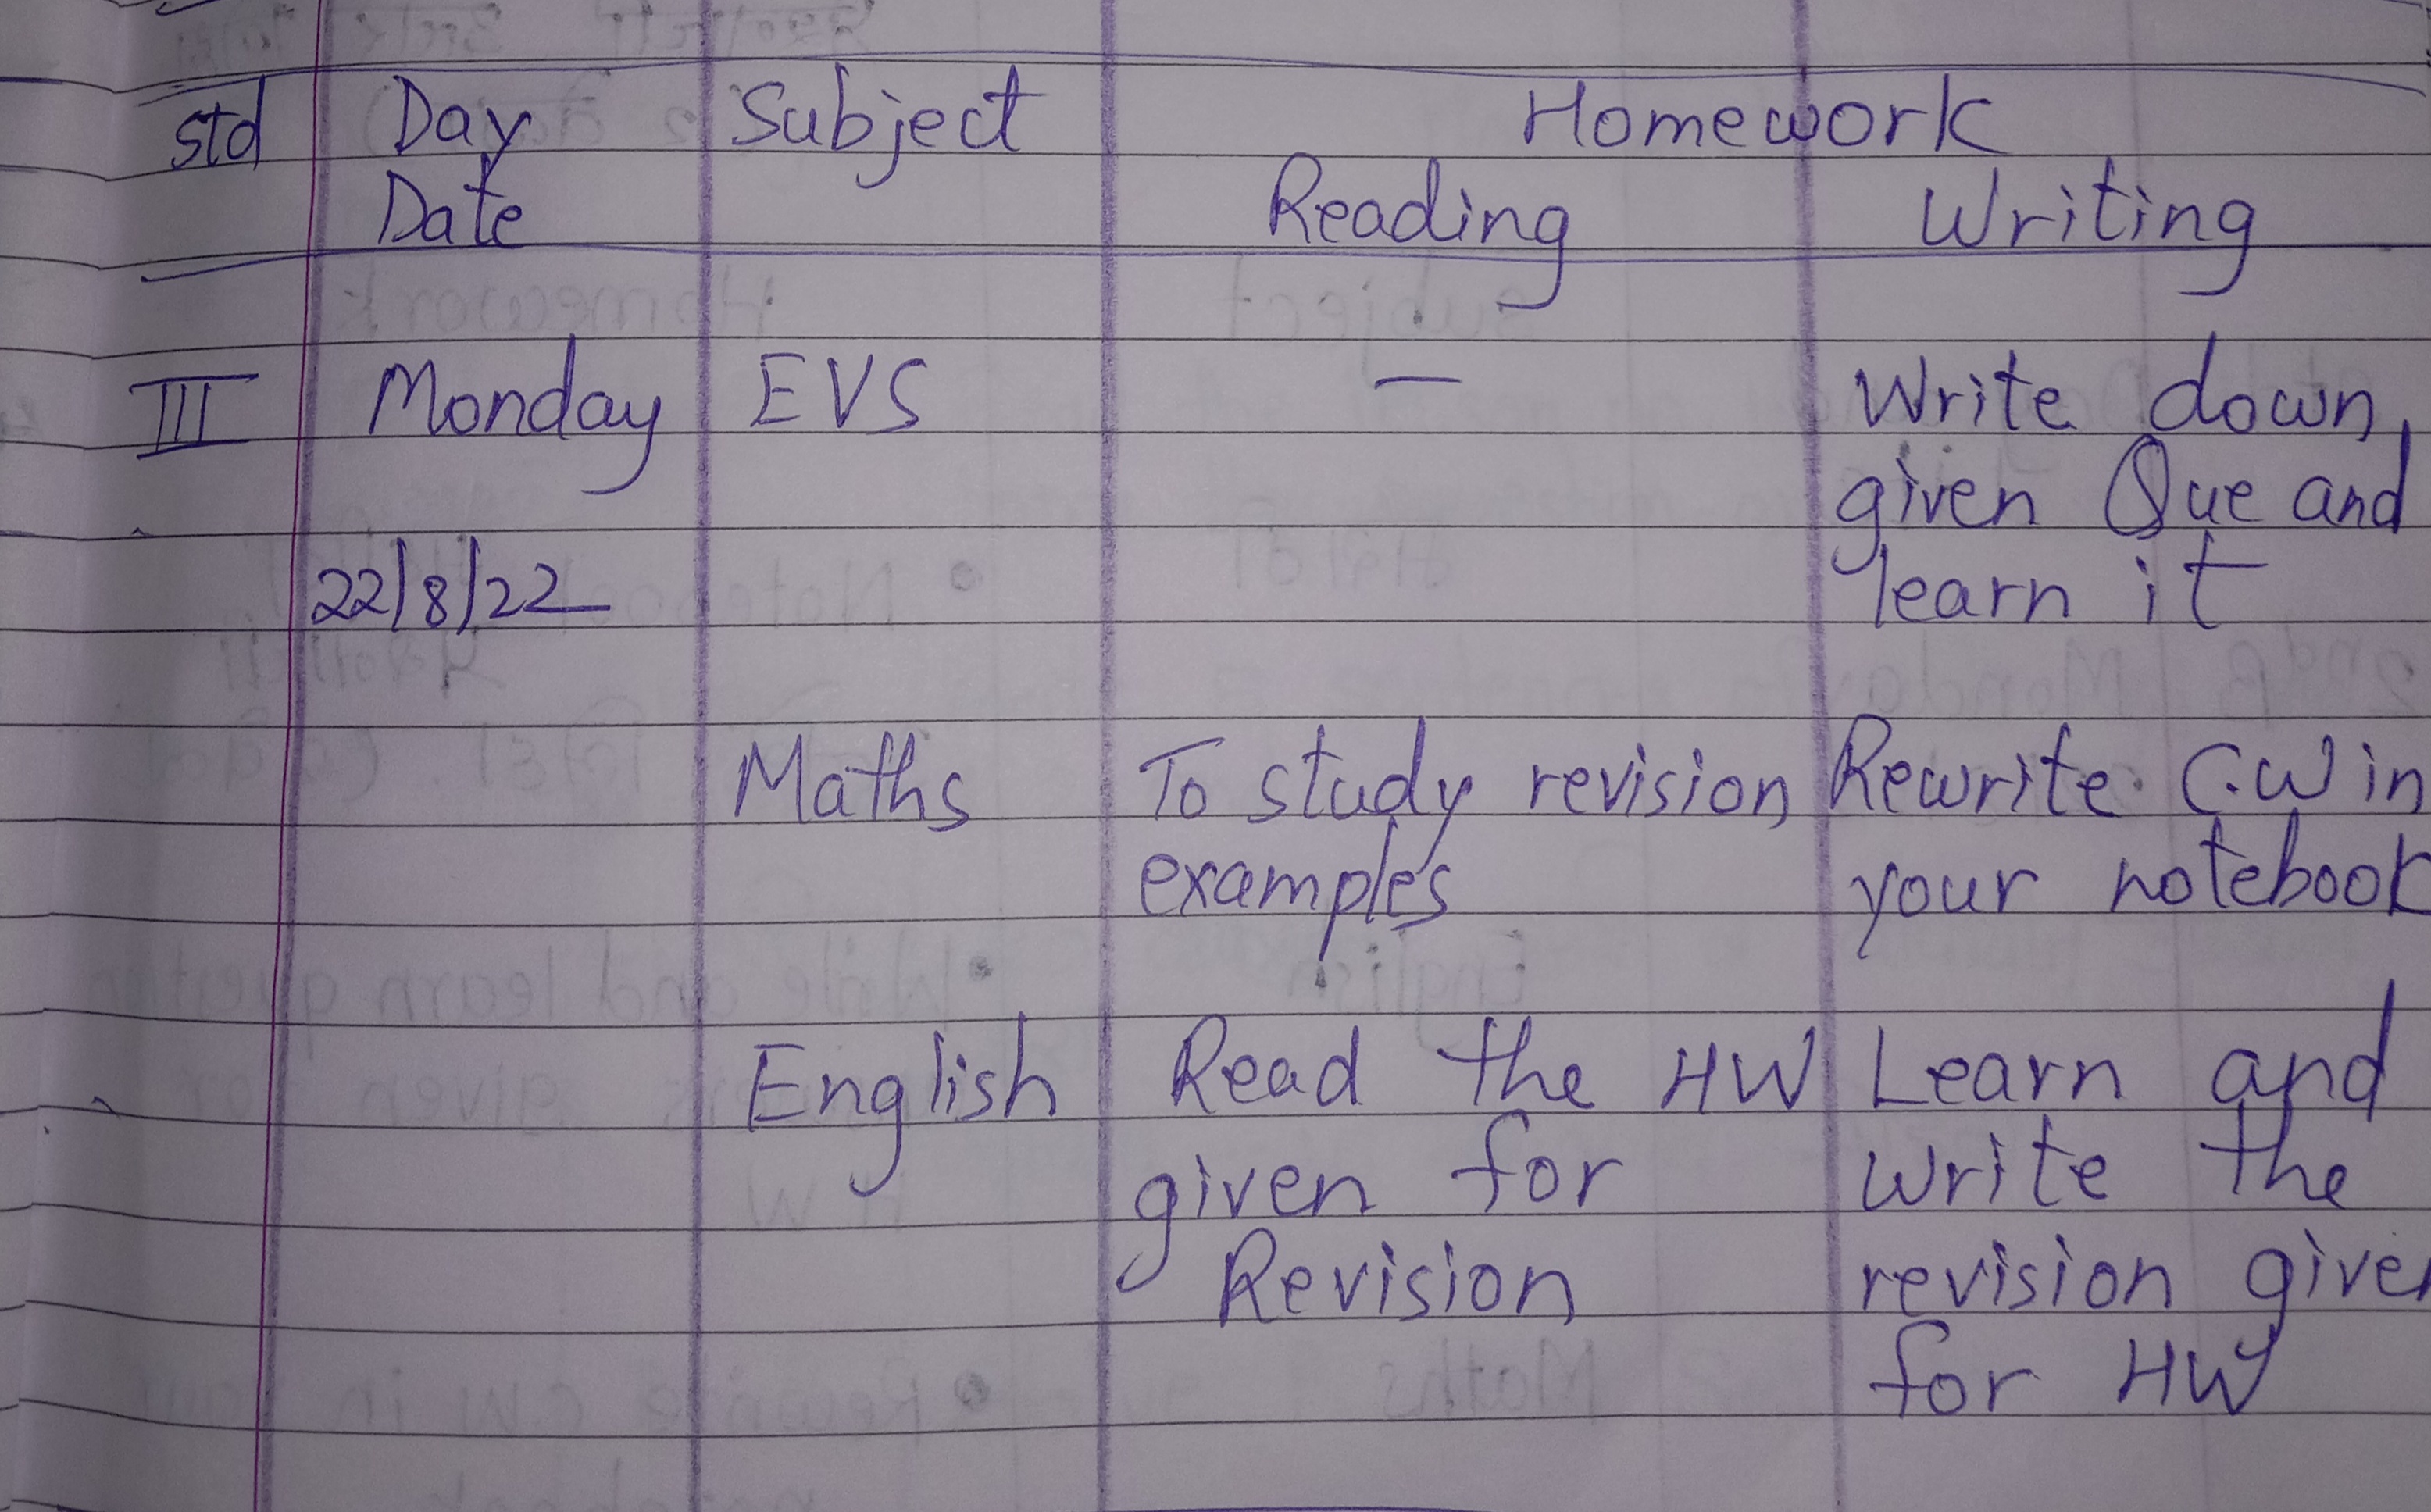 std Day Subject Homework
Date Reading Writing
III Monday EVS — Write down
given Que and
22/8/22 learn it
Maths To study revision Rewrite C.W in
examples your notebook
English Read the HW Learn and
given for write the
Revision revision given
for HW